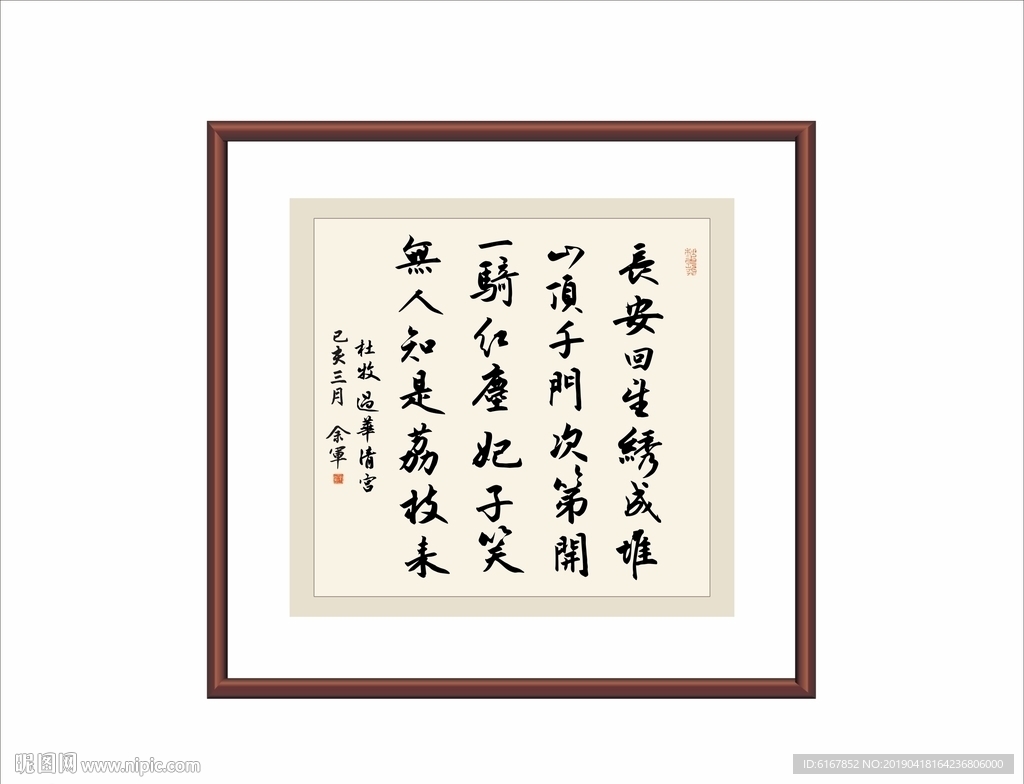 長安回望綉成堆
山頂千門次第開
一騎紅塵妃子笑
無人知是荔枝来
杜牧過華清宮
己亥三月 余軍
昵图网 www.nipic.com
ID:6167852 NO:20190418164236806000